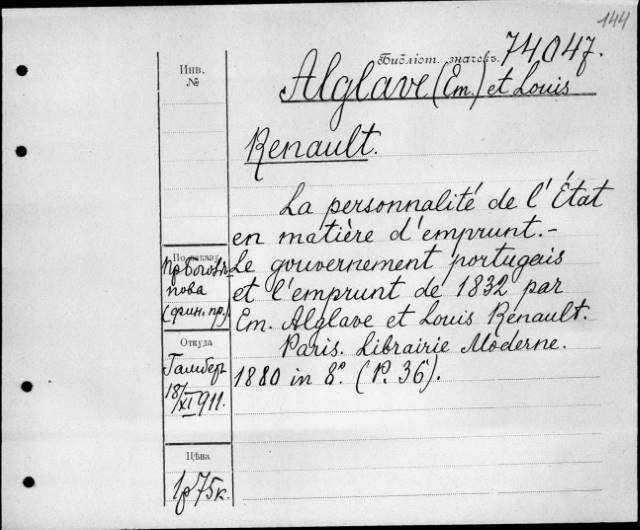 144
Библіот. значокъ. 74047.
Инв.
№
Alglave (Em.) et Louis
Renault.
La personnalité de l'État
en matière d'emprunt.-
Le gouvernement portugais
et l'emprunt de 1832 par
Em. Alglave et Louis Renault.
Paris. Librairie Moderne.
1880 in 8°. (P. 36).
По
пр
пова
(фин. пр.)
Откуда
Гамбер
18/XI 911.
Цѣна
1р 75к.